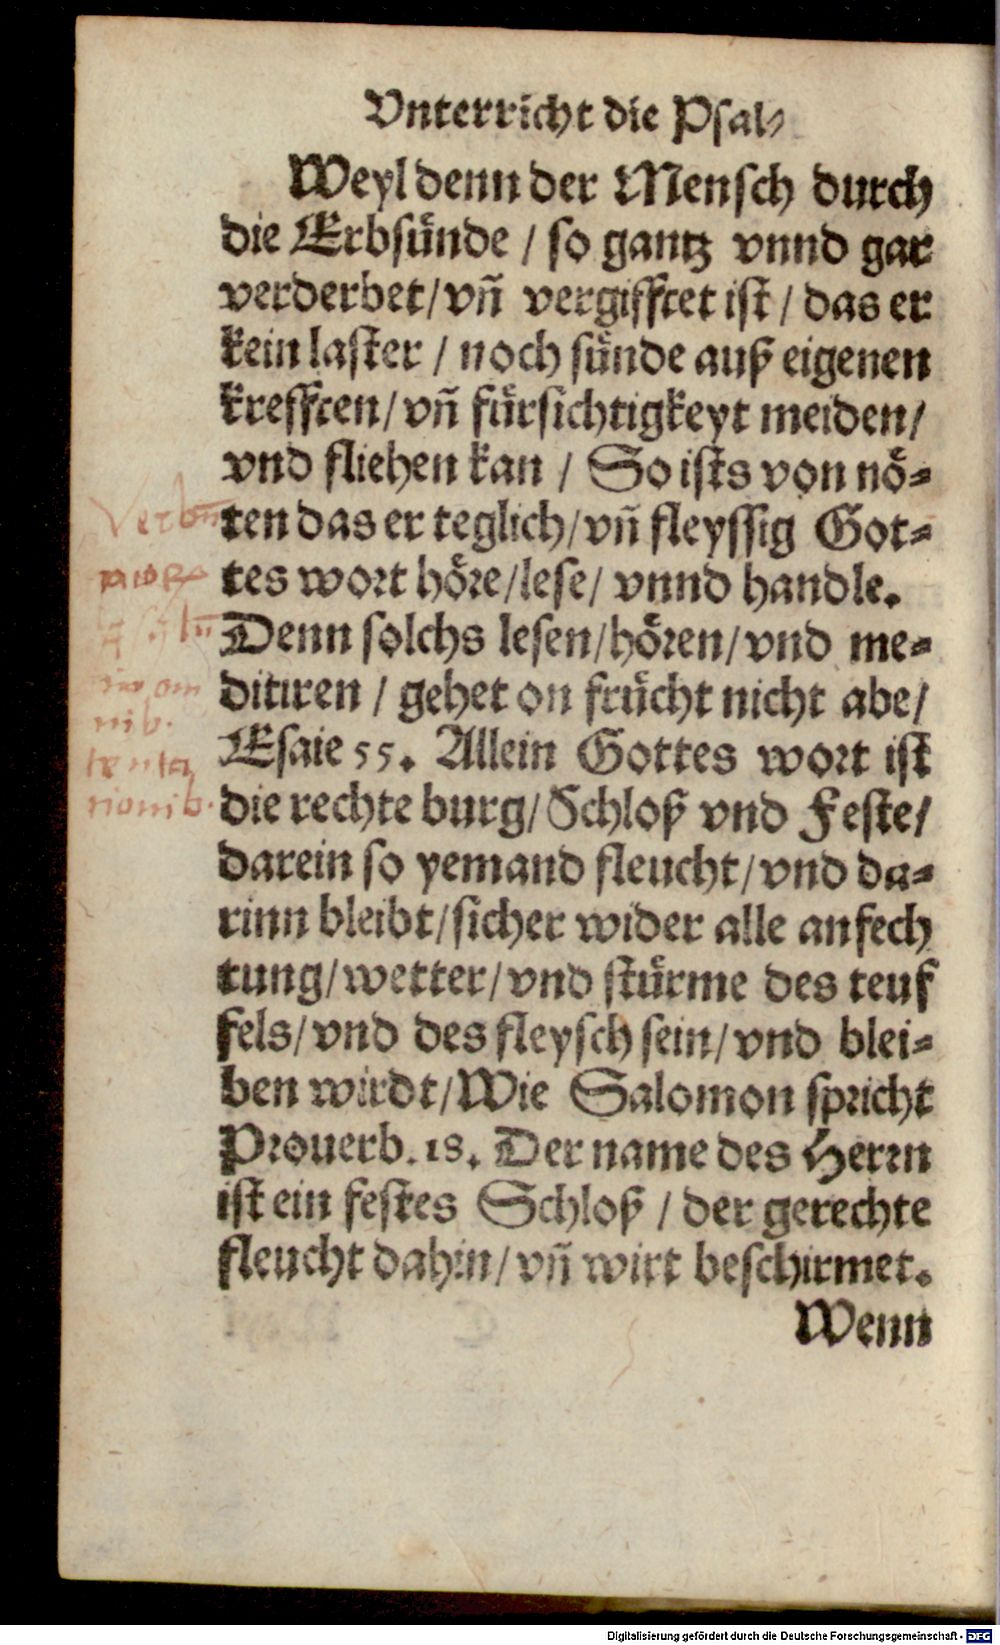 Vnterricht die Psal⸗
Weyl denn der Mensch durch
die Erbsuͤnde / so gantz vnnd gar
verderbet / vñ vergifftet ist / das er
kein laster / noch suͤnde auß eigenen
krefften / vñ fuͤrsichtigkeyt meiden /
vnd fliehen kan / So ists von noͤ⸗
ten das er teglich / vñ fleyssig Got⸗
tes wort hoͤre / lese / vnnd handle.
Denn solchs lesen / hoͤren / vnd me⸗
ditiren / gehet on fruͤcht nicht abe /
Esaie 55. Allein Gottes wort ist
die rechte burg / Schloß vnd Feste /
darein so yemand fleucht / vnd da⸗
rinn bleibt / sicher wider alle anfech
tung / wetter / vnd stuͤrme des teuf
fels / vnd des fleysch sein / vnd blei⸗
ben wirdt / Wie Salomon spricht
Prouerb. 18. Der name des Herrn
ist ein festes Schloß / der gerechte
fleucht dahin / vñ wirt beschirmet.
Wenn
Verbū
om
nib.
tenta
tionib.
Digitalisierung gefördert durch die Deutsche Forschungsgemeinschaft - DFG